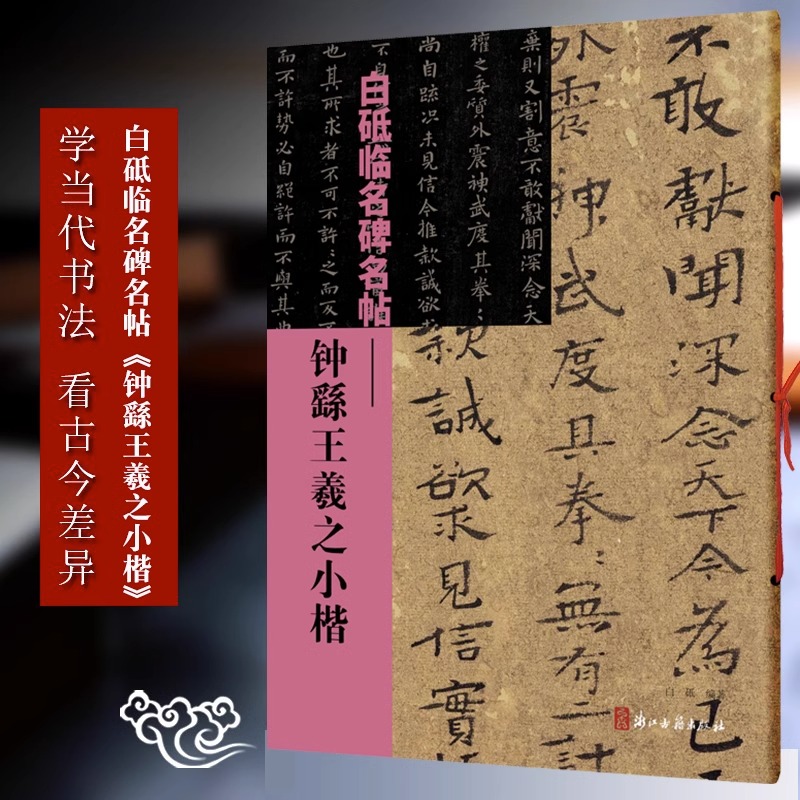 白砥临名碑名帖《钟繇王羲之小楷》
学当代书法 看古今差异
白砥临名碑名帖——
钟繇王羲之小楷
棄則又割意不敢獻聞深念天
權之委質外震神武度其拳〻
尚自疏況未見信今推款誠欲求
也其所求者不可不許〻之而反不
而不許勢必自絕許而不與其
不敢獻聞深念天下今為已
外震神武度其拳〻無有二計
款誠欲求見信實
白砥 编著
浙江古籍出版社